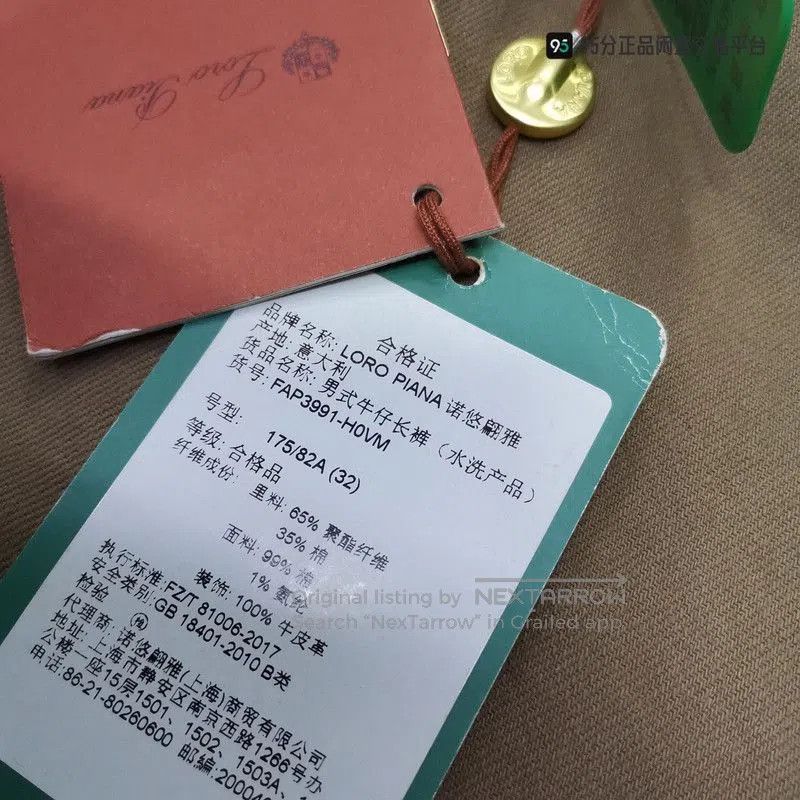 Loro Piana
95
95分正品闲置交易平台
合格证
品牌名称: LORO PIANA 诺悠翩雅
产地: 意大利
货品名称: 男式牛仔长裤（水洗产品）
货号: FAP3991-H0VM
号型: 175/82A (32)
等级: 合格品
纤维成份: 里料: 65% 聚酯纤维
35% 棉
面料: 99% 棉
1% 氨纶
装饰: 100% 牛皮革
执行标准:FZ/T 81006-2017
安全类别:GB 18401-2010 B类
检验
代理商: 诺悠翩雅(上海)商贸有限公司
地址: 上海市静安区南京西路1266号办
公楼一座15层1501、1502、1503A、
电话:86-21-80260600 邮编:20004
Original listing by NEXTARROW
Search "NexTarrow" in Grailed app